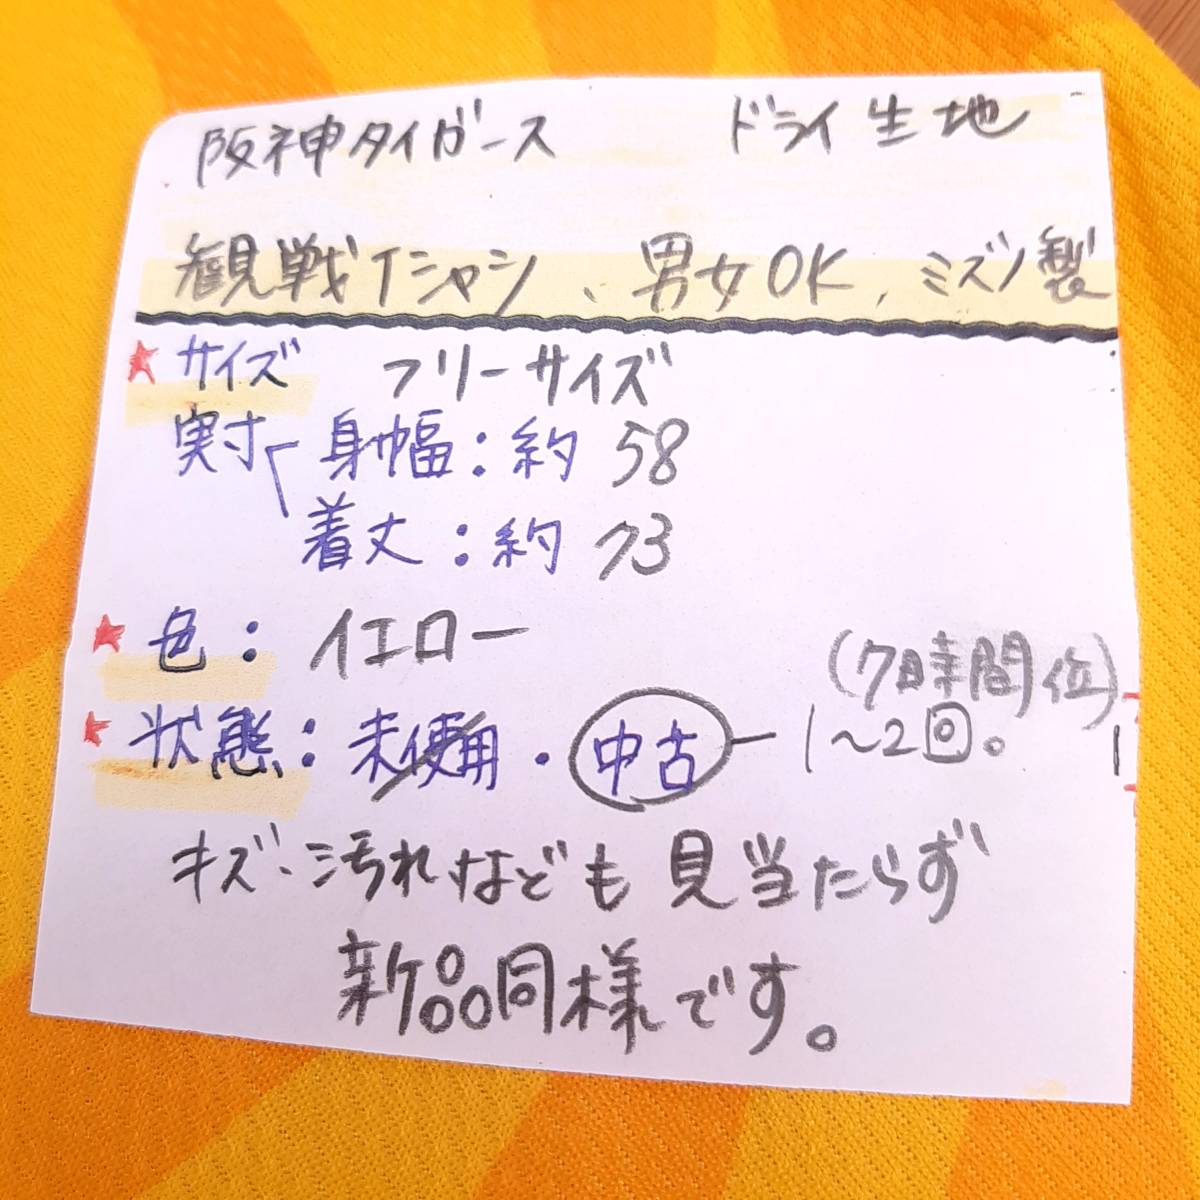 阪神タイガース ドライ生地
観戦Tシャツ、男女OK、ミズノ製
★サイズ フリーサイズ
実寸 身幅：約58
着丈：約73
★色：イエロー
(7時間位)
★状態：未使用・中古ー1〜2回。
キズ、汚れなども見当たらず
新品同様です。